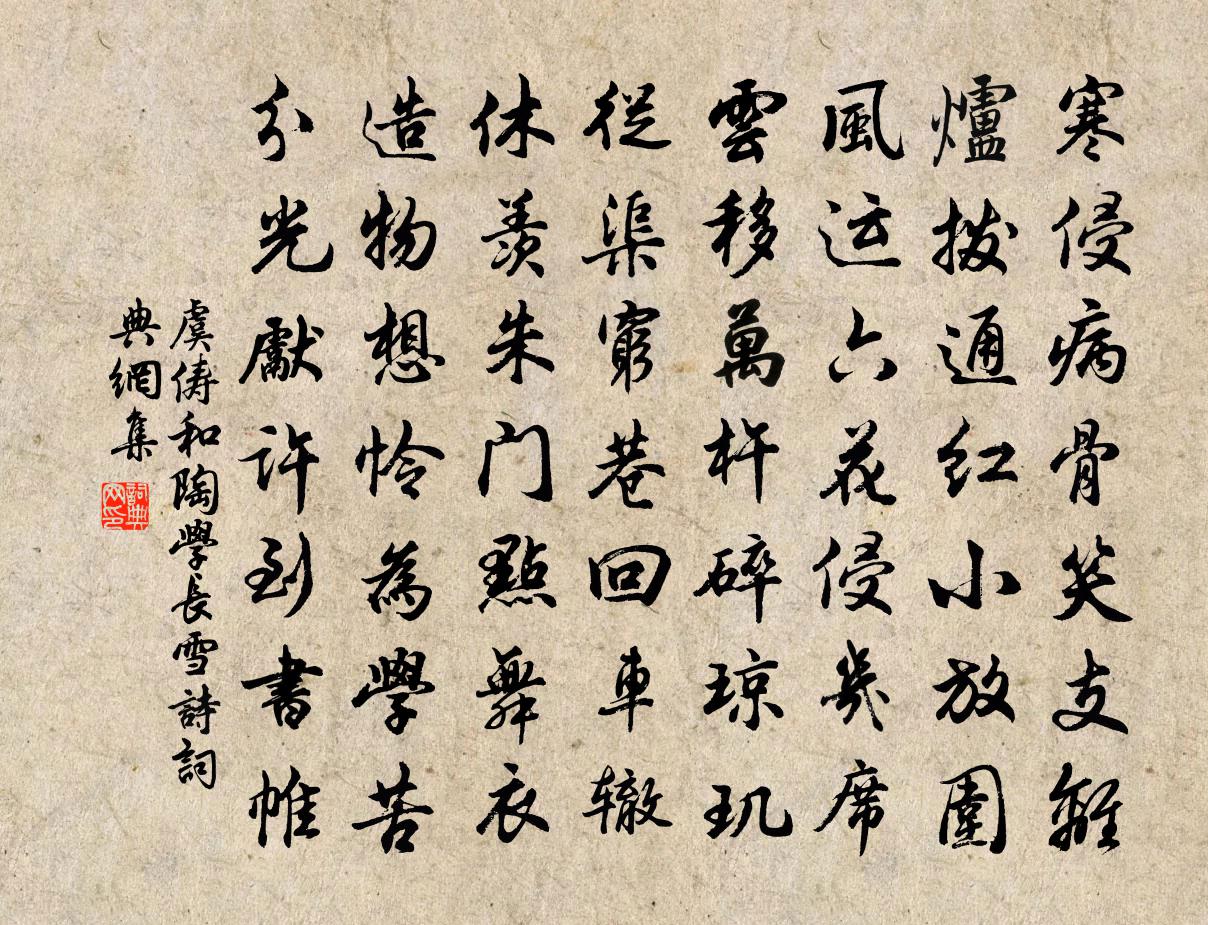 寒侵病骨笑支離
爐撥通红小放圍
風运六花侵幾席
雲移萬杵碎琼玑
從渠窮巷回車辙
休羡朱门點舞衣
造物想怜為學苦
分光獻許到書帷
虞儔和陶學長雪詩詞
典網集
詞典
网印